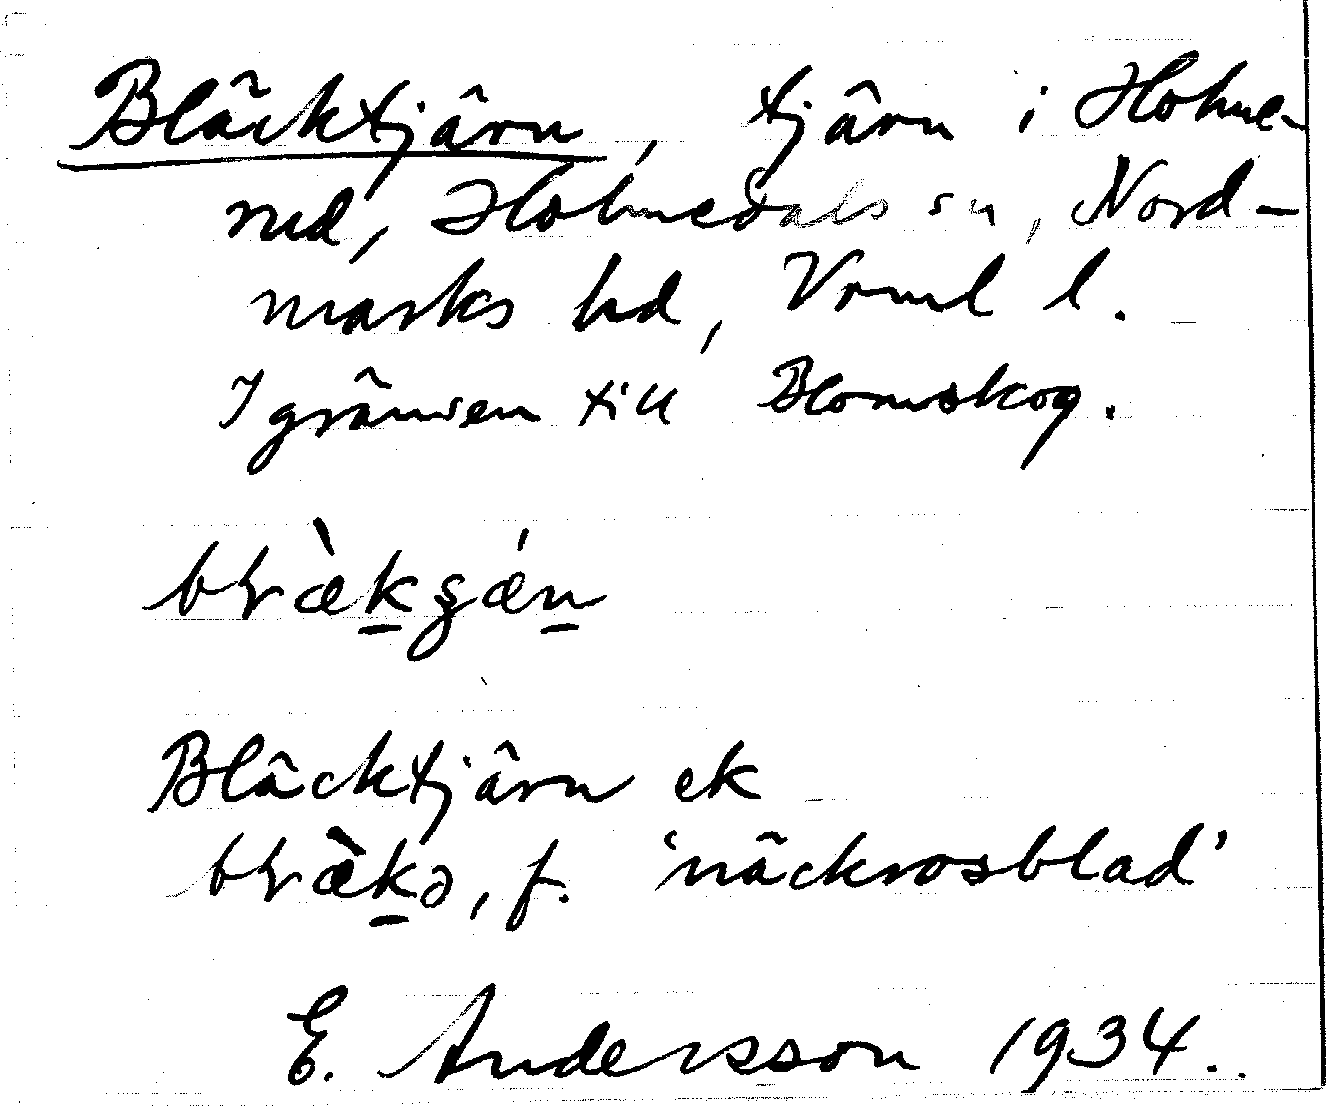 Bläcktjärn, tjärn i Holme-
rud, Holmedals sn, Nord-
marks hd, Vrml l.
I gränsen till Blomskog.
Bläcktjärn ek
f. 'näckrosblad'
E. Andersson 1934..